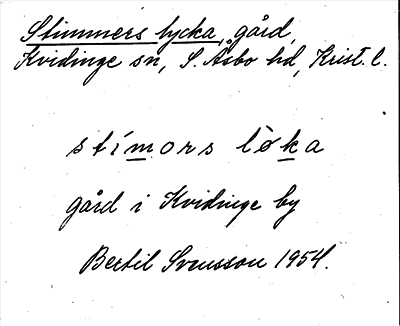 Stimmers lycka, gård,
Kvidinge sn, S. Åsbo hd, Krist. l.
stímors lòka
gård i Kvidinge by
Bertil Svensson 1954.